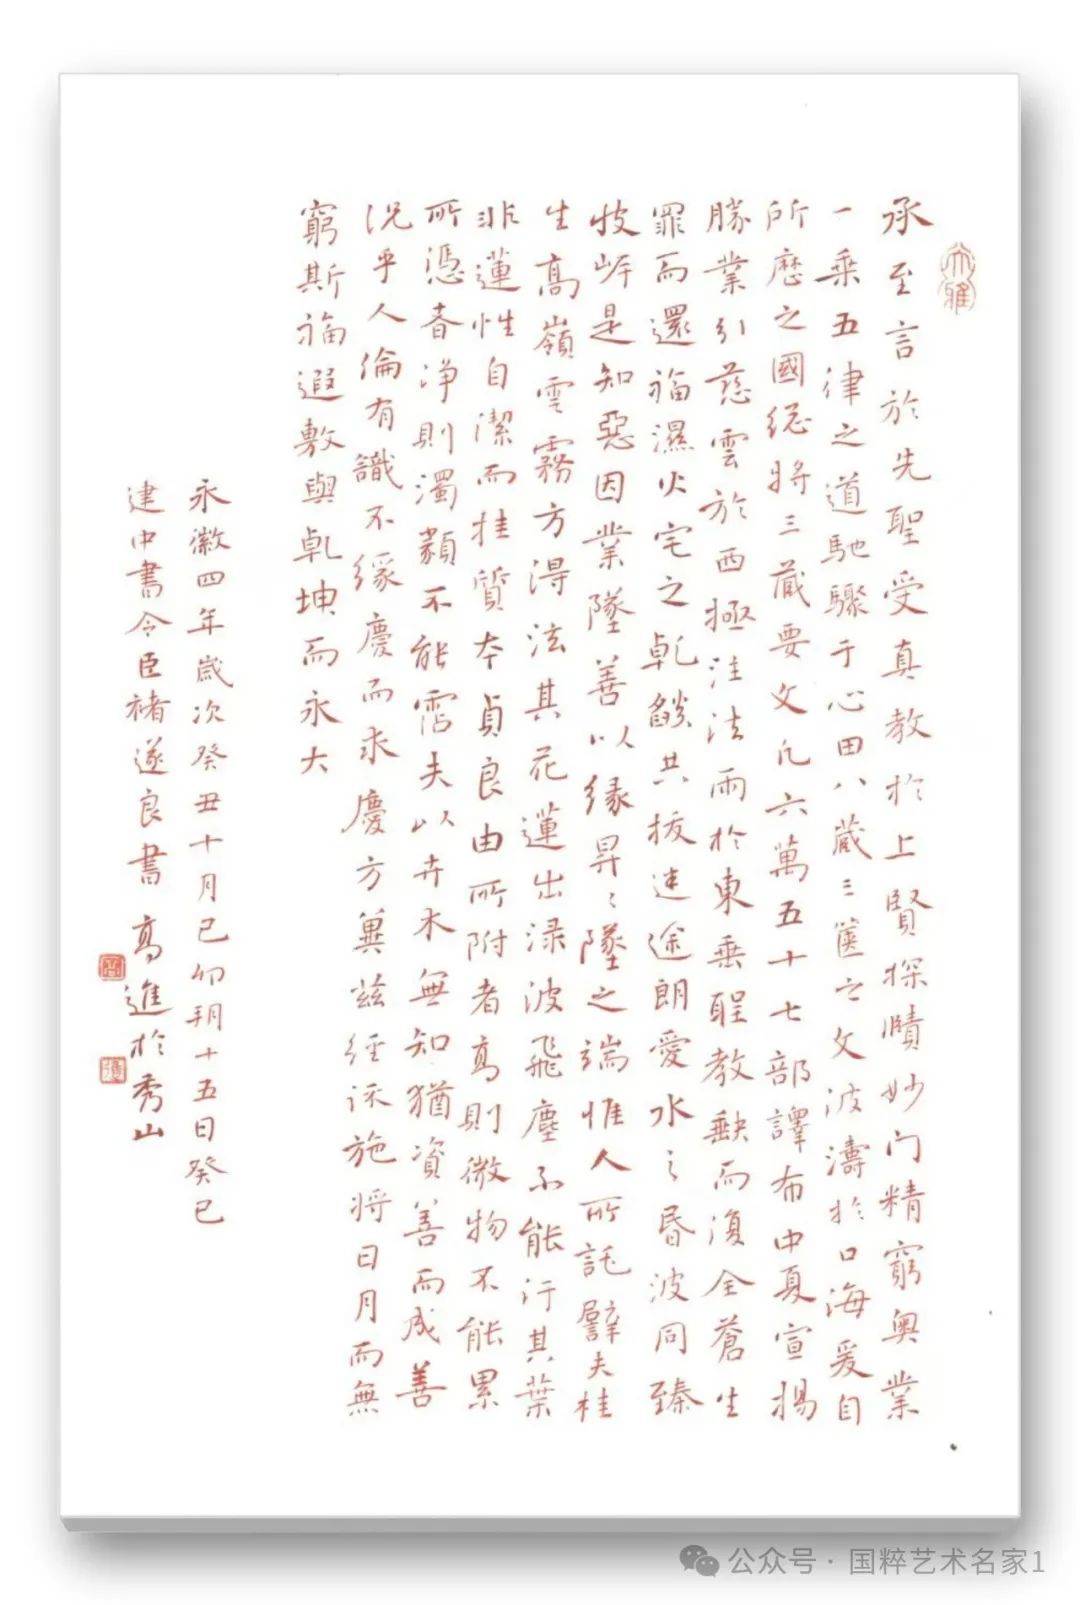 大雅
承至言於先聖受真教於上賢探賾妙门精窮奥業
一乗五律之道馳驟于心田八蔵三篋之文波濤於口海爰自
所歷之國総将三蔵要文凡六萬五十七部譯布中夏宣揚
勝業引慈雲於西極注法雨於東垂聖教缺而復全蒼生
罪而還福濕火宅之乹燄共拔迷途朗愛水之昏波同臻
彼岸是知惡因業墜善以縁昇〻墜之端惟人所託譬夫桂
生高嶺雲霧方得泫其花蓮出渌波飛塵不能汙其葉
非蓮性自潔而桂質本貞良由所附者高則微物不能累
所憑者净則濁類不能霑夫以卉木無知猶資善而成善
况乎人倫有識不縁慶而求慶方冀兹經流施将日月而無
窮斯福遐敷與乹坤而永大
永徽四年歲次癸丑十月己卯朔十五日癸巳
建中書令臣褚遂良書 高進於秀山
公众号 · 国粹艺术名家1